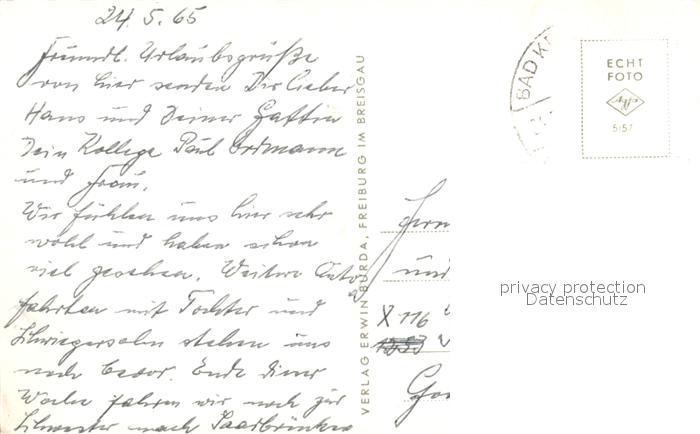 24.5.65
Freundl. Urlaubsgrüße
von hier senden Dir lieber
Hans und Deiner Gattin
Dein Kollege Paul Ortmann
und Frau.
Wir fühlen uns hier sehr
wohl und haben schon
viel gesehen. Weitere Auto-
fahrten mit Tochter und
Schwiegersohn stehen uns
noch bevor. Ende dieser
Woche fahren wir noch zur
Schwester nach Saarbrücken
VERLAG ERWIN BURDA, FREIBURG IM BREISGAU
BAD K
ECHT
FOTO
Agfa
5/57
und
X 116
privacy protection
Datenschutz